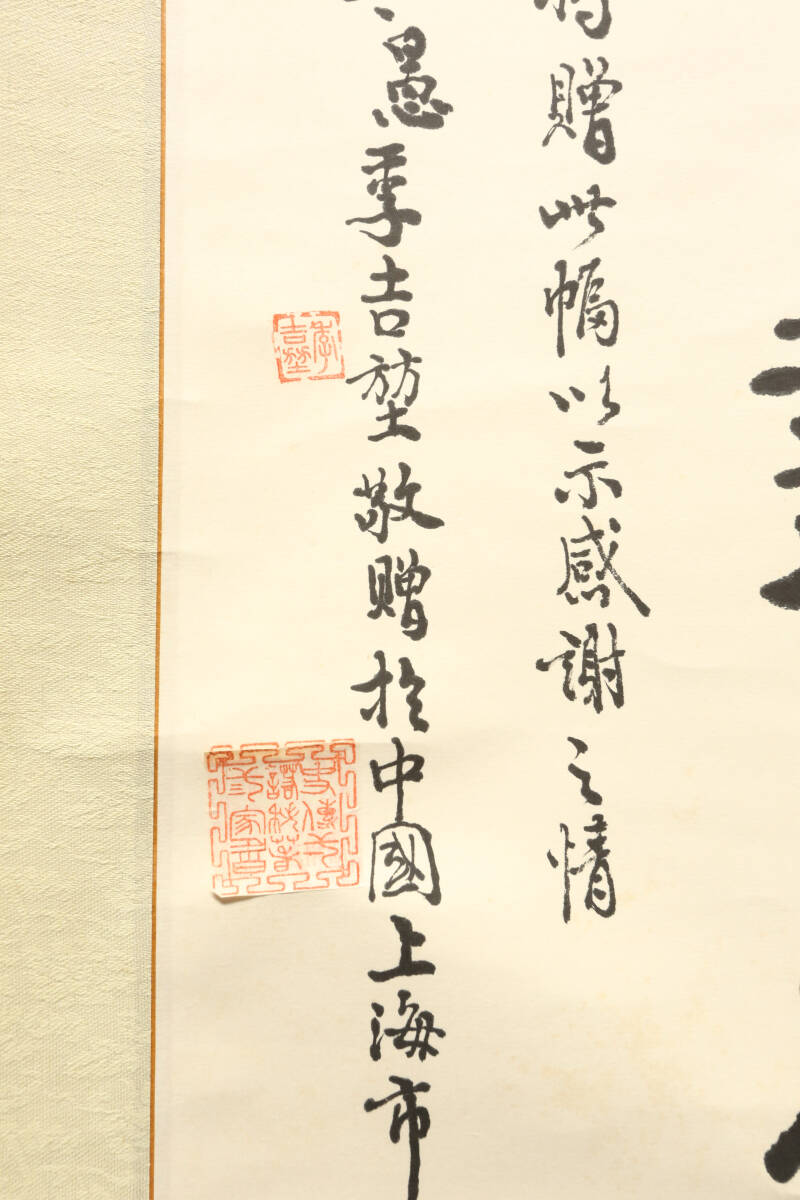 贈此幅以示感謝之情
愚季吉堃敬贈於中國上海市
季吉堃